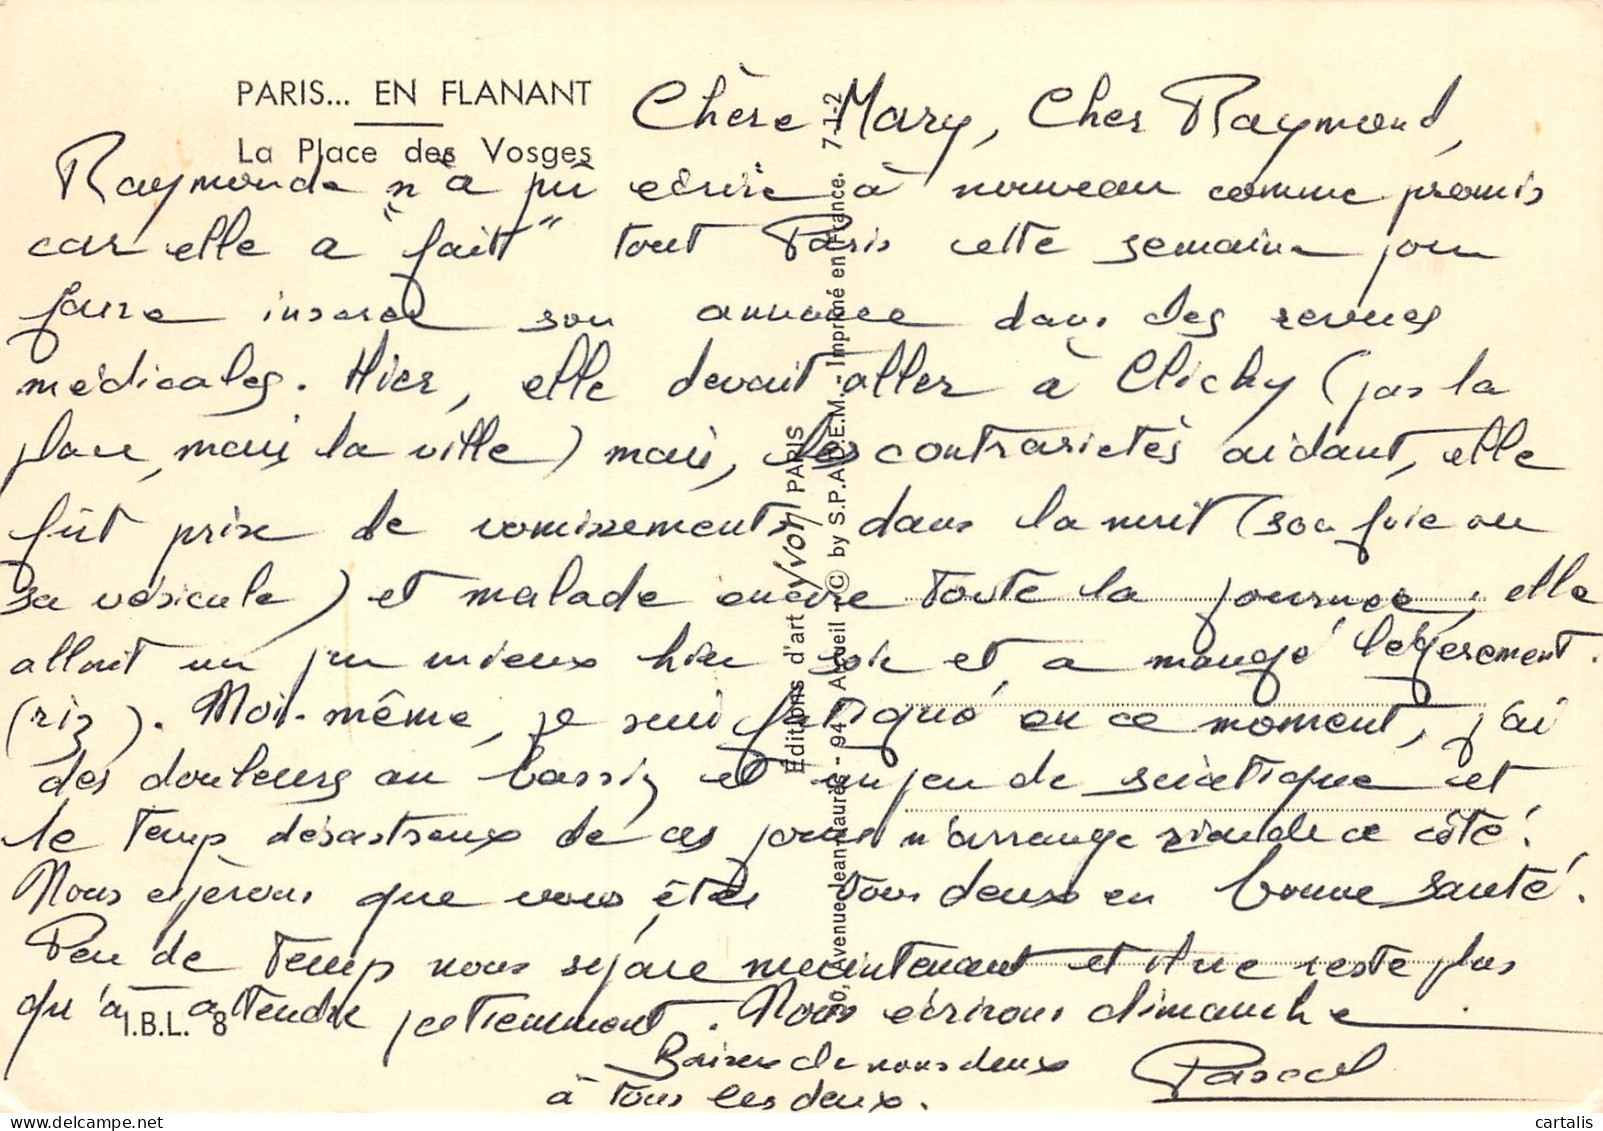 PARIS... EN FLANANT
La Place des Vosges
Chère Mary, Cher Raymond,
Raymonde n'a pû écrire à nouveau comme promis
car elle a "fait" tout Paris cette semaine pour
faire inserer son annonce dans des revues
médicales. Hier, elle devait aller à Clichy (pas la
place, mais la ville) mais, les contrariétés aidant, elle
fût prise de vomissements dans la nuit (son foie ou
sa vésicule) et malade encore toute la journée; elle
allait un peu mieux hier soir et a mangé légèrement.
(riz). Moi-même, je suis fatigué en ce moment, j'ai
des douleurs au bassin et un peu de sciatique et
le temps désastreux de ces jours n'arrange rien de ce côté!
Nous espérons que vous êtes tous deux en bonne santé!
Peu de temps nous sépare maintenant et il ne reste plus
qu'à attendre patiemment. Nous écrirons dimanche
Baisers de nous deux
à tous les deux.
Pascal
I.B.L. 8
Editions d'art Yvon PARIS
Avenue Jean-Jaurès - 94 - Arcueil - © by S.P.A.D.E.M. - Imprimé en France. 7-1-2
cartalis